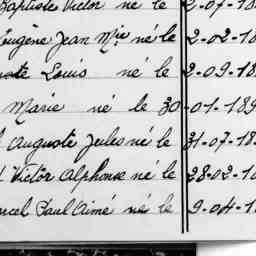 Baptiste Victor né le 2-07-18
Eugène Jean Mie né le 2-02-18
Louis né le 2-09-18
Marie né le 30-01-189
Auguste Jules né le 31-07-18
Victor Alphonse né le 28-02-18
Paul Aimé né le 9-04-1